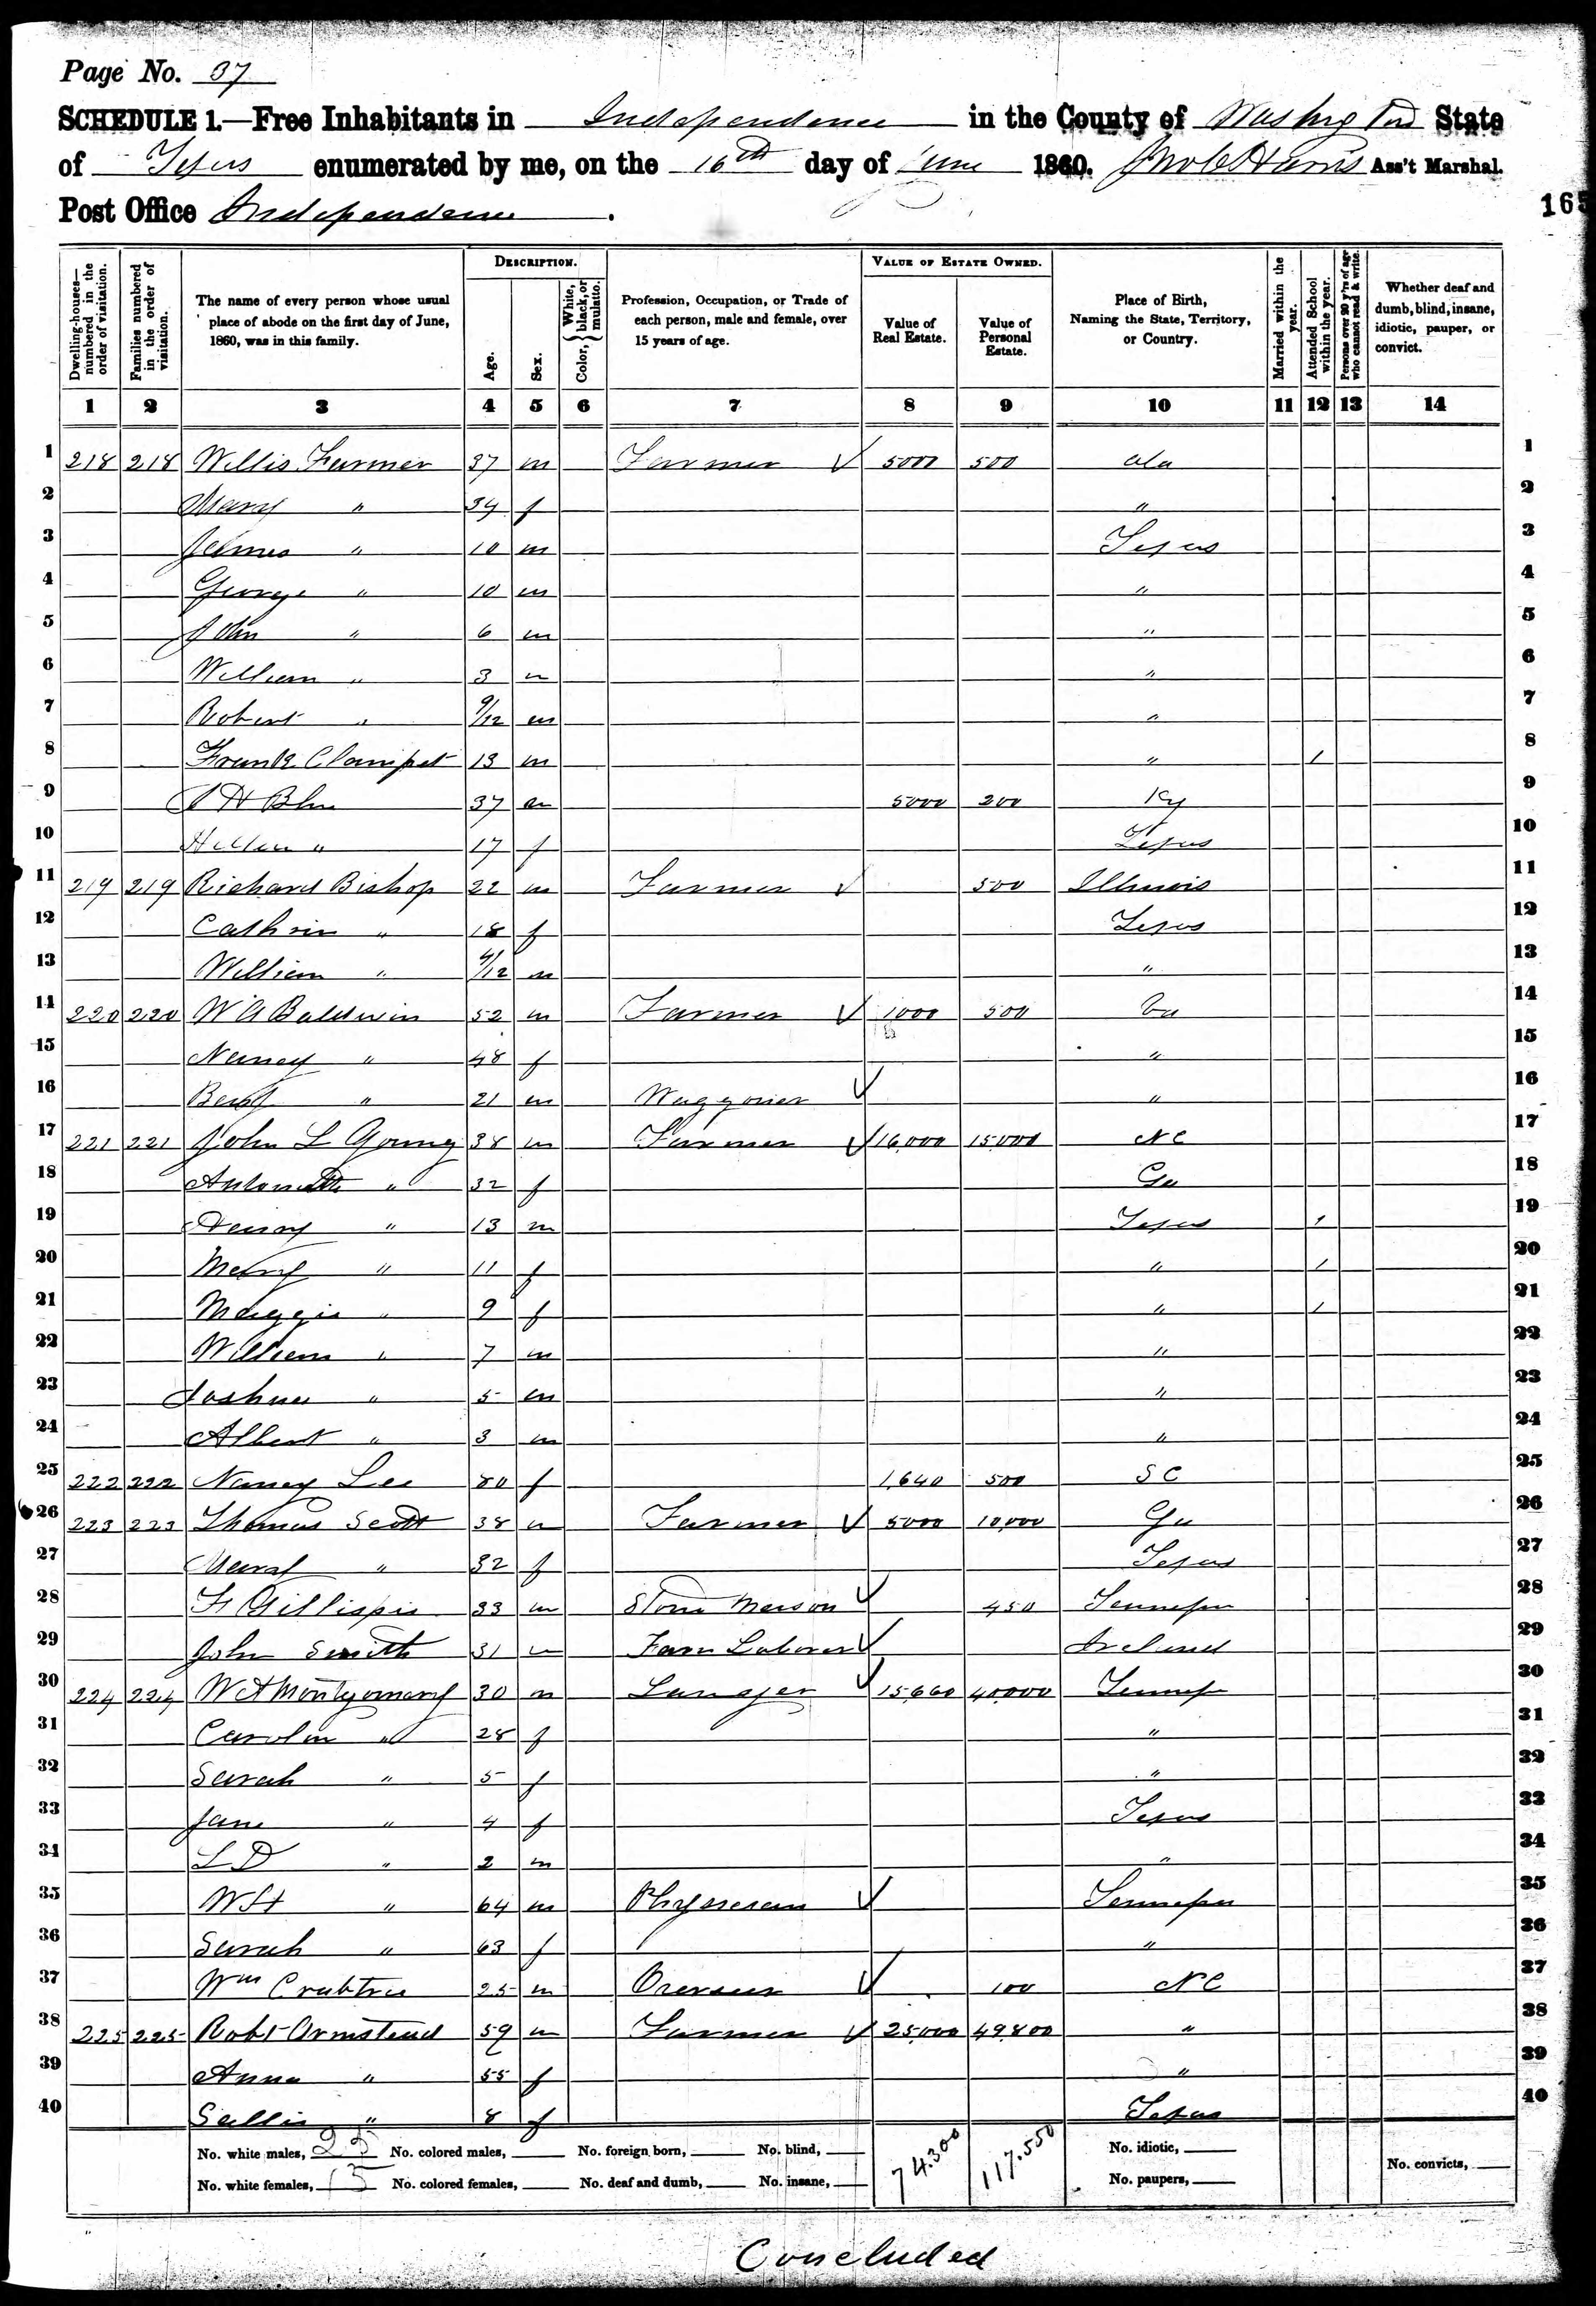 Page No. 37
SCHEDULE 1.—Free Inhabitants in Independence in the County of Washington State
of Texas enumerated by me, on the 16th day of June 1860. Jno C Harris Ass't Marshal.
Post Office Independence .
165
Dwelling-houses—numbered in the order of visitation.
Families numbered in the order of visitation.
The name of every person whose usual place of abode on the first day of June, 1860, was in this family.
DESCRIPTION.
Age.
Sex.
Color, { White, black, or mulatto.
Profession, Occupation, or Trade of each person, male and female, over 15 years of age.
VALUE OF ESTATE OWNED.
Value of Real Estate.
Value of Personal Estate.
Place of Birth, Naming the State, Territory, or Country.
Married within the year.
Attended School within the year.
Persons over 20 y'rs of age who cannot read & write.
Whether deaf and dumb, blind, insane, idiotic, pauper, or convict.
1 2 3 4 5 6 7 8 9 10 11 12 13 14
1 218 218 Willis Farmer 37 m Farmer ✓ 5000 500 Ala 1
2 Mary " 34 f " 2
3 James " 10 m Texas 3
4 George " 10 m " 4
5 John " 6 m " 5
6 William " 3 m " 6
7 Robert " 9/12 m " 7
8 Frank Clampet 13 m " / 8
9 37 m 5000 200 Ky 9
10 Hellen " 17 f Texas 10
11 219 219 Richard Bishop 22 m Farmer ✓ 500 Illinois 11
12 Cathrin " 18 f Texas 12
13 William " 4/12 m " 13
14 220 220 W A Baldwin 52 m Farmer ✓ 1000 500 14
15 Nancy " 48 f " 15
16 Benj " 21 m Waggoner ✓ " 16
17 221 221 John L Young 38 m Farmer ✓ 16,000 15000 NC 17
18 Antonette " 32 f Ga 18
19 Henry " 13 m Texas / 19
20 Mary " 11 f " / 20
21 Maggie " 9 f " / 21
22 William " 7 m " 22
23 Joshua " 5 m " 23
24 Albert " 3 m " 24
25 222 222 Nancy Lee 80 f 1,640 500 S C 25
26 223 223 Thomas Scott 38 m Farmer ✓ 5000 10,000 Ga 26
27 Mary " 32 f Texas 27
28 F Gillispie 33 m Stone Mason ✓ 450 Tennessee 28
29 John Smith 31 m Farm Laborer ✓ Ireland 29
30 224 224 W A Montgomery 30 m Lawyer ✓ 15,660 40,000 Tenness 30
31 Carolin " 28 f " 31
32 Sarah " 5 f " 32
33 Jane " 4 f Texas 33
34 L D " 2 m " 34
35 W H " 64 m Physician ✓ Tennessee 35
36 Sarah " 63 f " 36
37 Wm Crabtree 25 m Overseer ✓ 100 NC 37
38 225 225 Robt Armstead 59 m Farmer ✓ 25,000 49,800 " 38
39 Anna " 55 f " 39
40 Sallie " 8 f Texas 40
No. white males, 25 No. colored males, No. foreign born, No. blind, 74.300 117.550 No. idiotic,
No. white females, 15 No. colored females, No. deaf and dumb, No. insane, No. paupers, No. convicts,
Concluded